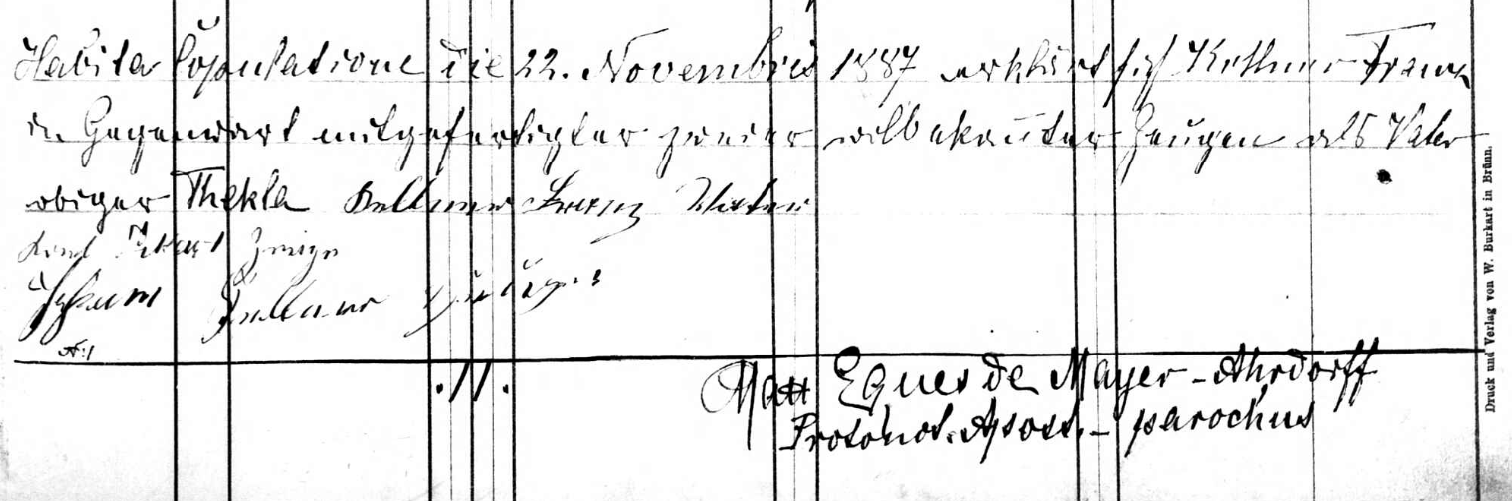 Habita Copulatione die 22. Novembris 1887 erklärt sich Kellner Franz
in Gegenwart mitgefertigter zweier wilbekanter Zeugen als Vater
obiger Thekla Kellner Franz Vater
Zeuge
Johann Zeuge
.11.
Eques de Mayer-Ahrdorff
Protonot. Apost. - parochus
Druck und Verlag von W. Burkart in Brünn.